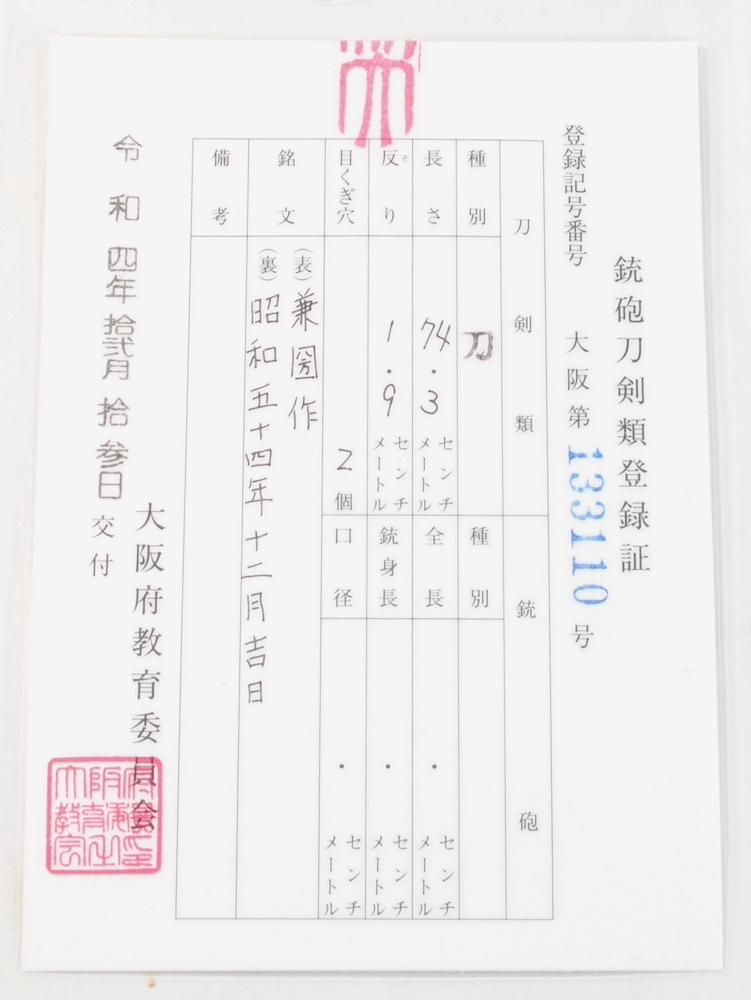 銃砲刀剣類登録証
登録記号番号 大阪第 133110 号
刀剣類
種別 刀
長さ 74.3 センチメートル
反り 1.9 センチメートル
そ
目くぎ穴 2個
銘文
(表)兼圀作
(裏)昭和五十四年十二月吉日
備考
銃砲
種別
全長 ・ センチメートル
銃身長 ・ センチメートル
口径 ・ センチメートル
令和四年拾弐月拾参日 交付
大阪府教育委員会